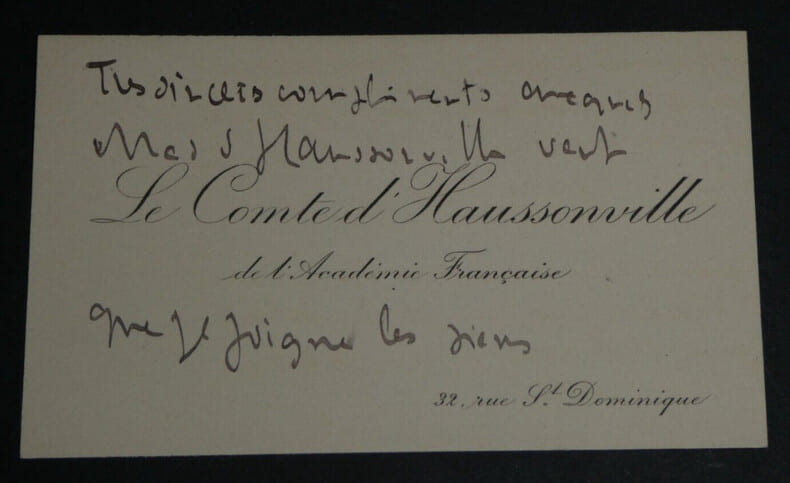 Tres sincères compliments auxquels
Mad d'Haussonville veut
Le Comte d'Haussonville
de l'Académie Française
que je joigne les siens
32, rue St. Dominique